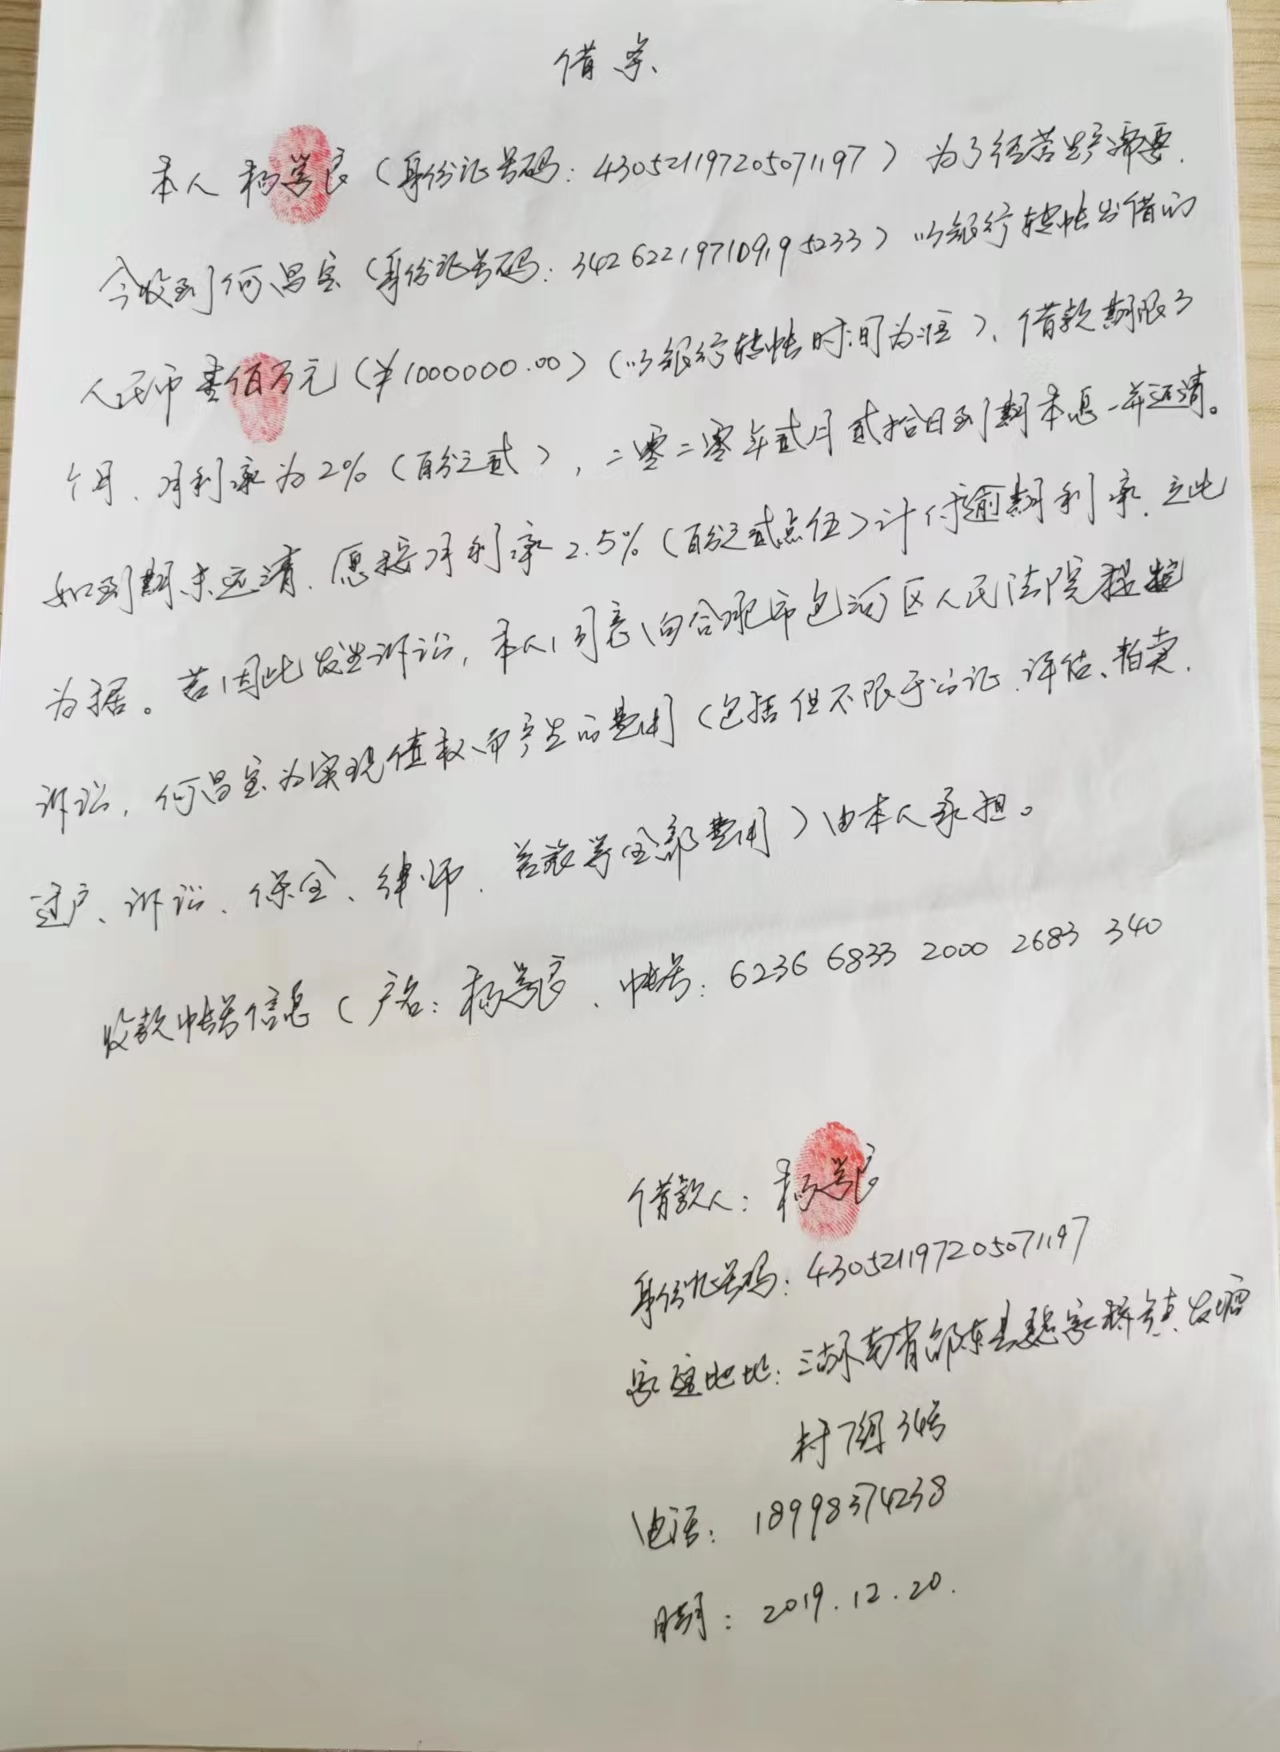 借条
本人杨学良（身份证号码：430521197205071197）为了经营生产需要.
今收到何昌宝（身份证号码：342622197109195233）以银行转帐出借的
人民币壹佰万元（¥1000000.00）（以银行转帐时间为准）、借款期限3
个月、月利率为2%（百分之贰），二零二零年贰月贰拾日到期本息一并还清。
如到期未还清、愿按月利率2.5%（百分之贰点伍）计付逾期利率.立此
为据。若因此发生诉讼，本人同意向合肥市包河区人民法院提起
诉讼，何昌宝为实现债权而产生的费用（包括但不限于公证、评估、拍卖、
过户、诉讼、保全、律师、差旅等全部费用）由本人承担。
收款帐号信息（户名：杨学良、帐号：6236 6833 2000 2683 340
借款人：杨学良
身份证号码：430521197205071197
家庭地址：湖南省邵东县魏家桥镇发塘
村7组34号
电话：18998374238
日期：2019.12.20.